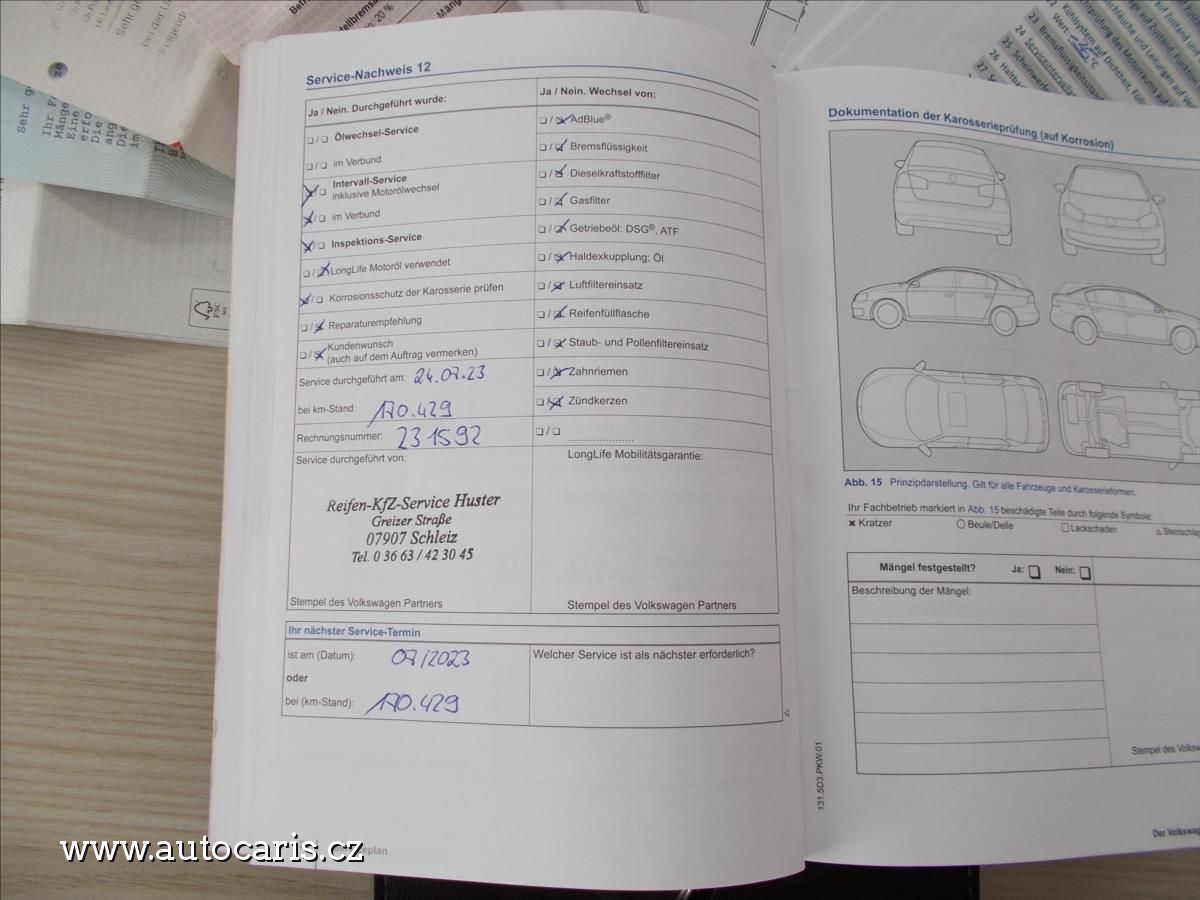 Service-Nachweis 12
Ja / Nein. Durchgeführt wurde:
Ölwechsel-Service
im Verbund
Intervall-Service
inklusive Motorölwechsel
im Verbund
Inspektions-Service
LongLife Motoröl verwendet
Korrosionsschutz der Karosserie prüfen
Reparaturempfehlung
Kundenwunsch
(auch auf dem Auftrag vermerken)
Service durchgeführt am: 24.07.23
bei km-Stand: 170.429
Rechnungsnummer: 231592
Service durchgeführt von:
Reifen-KfZ-Service Huster
Greizer Straße
07907 Schleiz
Tel. 0 36 63 / 42 30 45
Stempel des Volkswagen Partners
Ja / Nein. Wechsel von:
AdBlue®
Bremsflüssigkeit
Dieselkraftstofffilter
Gasfilter
Getriebeöl: DSG®, ATF
Haldexkupplung: Öl
Luftfiltereinsatz
Reifenfüllflasche
Staub- und Pollenfiltereinsatz
Zahnriemen
Zündkerzen
LongLife Mobilitätsgarantie:
Stempel des Volkswagen Partners
Ihr nächster Service-Termin
ist am (Datum): 07/2023
oder
bei (km-Stand): 170.429
Welcher Service ist als nächster erforderlich?
Dokumentation der Karosserieprüfung (auf Korrosion)
Abb. 15 Prinzipdarstellung. Gilt für alle Fahrzeuge und Karosserieformen.
Ihr Fachbetrieb markiert in Abb. 15 beschädigte Teile durch folgende Symbole:
Kratzer Beule/Delle Lackschaden Steinschlag
Mängel festgestellt? Ja: Nein:
Beschreibung der Mängel:
Stempel des Volkswa
131.5D3.PKW.01
Der Volkswag
www.autocaris.cz